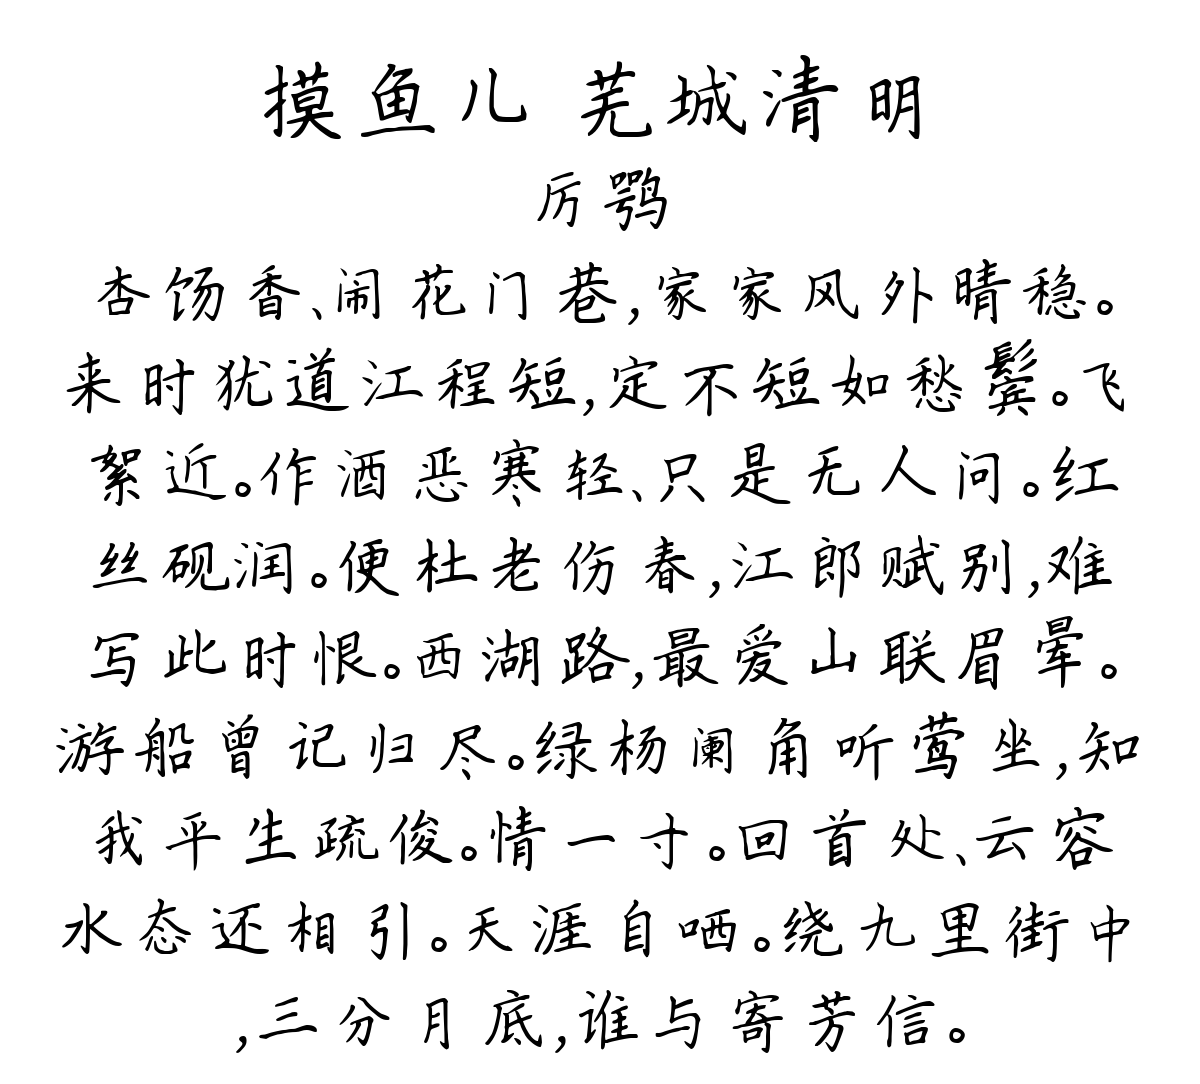 摸鱼儿 芜城清明
厉鹗
杏饧香、闹花门巷,家家风外晴稳。
来时犹道江程短,定不短如愁鬓。飞
絮近。作酒恶寒轻、只是无人问。红
丝砚润。便杜老伤春,江郎赋别,难
写此时恨。西湖路,最爱山联眉晕。
游船曾记归尽。绿杨阑角听莺坐,知
我平生疏俊。情一寸。回首处、云容
水态还相引。天涯自哂。绕九里街中
,三分月底,谁与寄芳信。